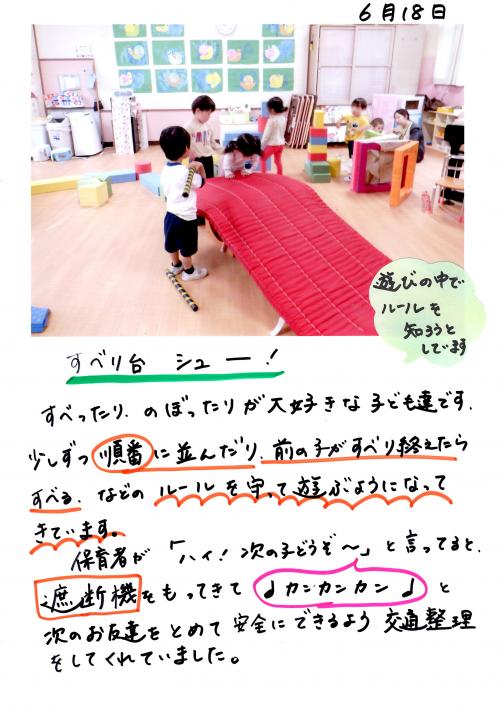 6月18日
遊びの中で
ルールを
知ろうと
しています
すべり台 シュー!
すべったり、のぼったりが大好きな子ども達です。
少しずつ順番に並んだり、前の子がすべり終えたら
すべる、などのルールを守って遊ぶようになって
きています。
保育者が「ハイ!次の子どうぞ〜」と言ってると、
遮断機をもってきて ♩カンカンカン♩ と
次のお友達をとめて安全にできるよう交通整理
をしてくれていました。